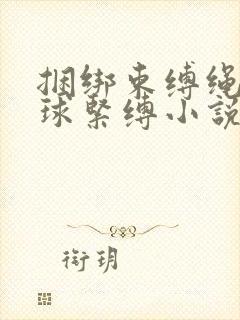 捆绑束缚绳
球紧缚小说
衔玥